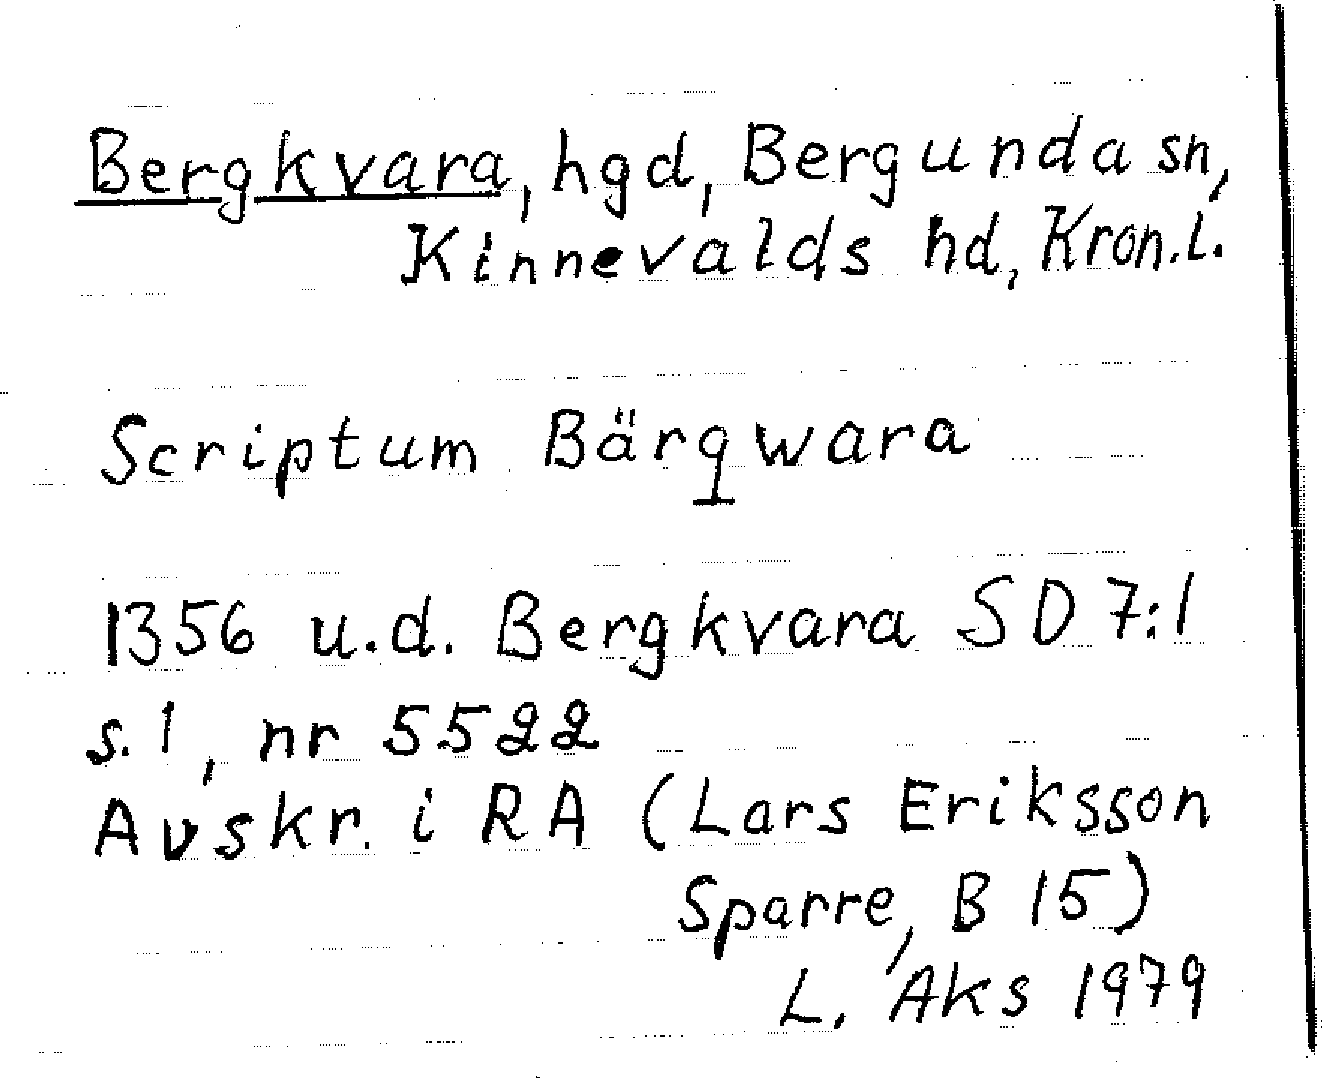 Bergkvara, hgd, Bergunda sn,
Kinnevalds hd, Kron.l.
Scriptum Bärqwara
1356 u.d. Bergkvara SD 7:1
s. 1, nr 5522
Avskr. i RA (Lars Eriksson
Sparre, B 15)
L. Aks 1979